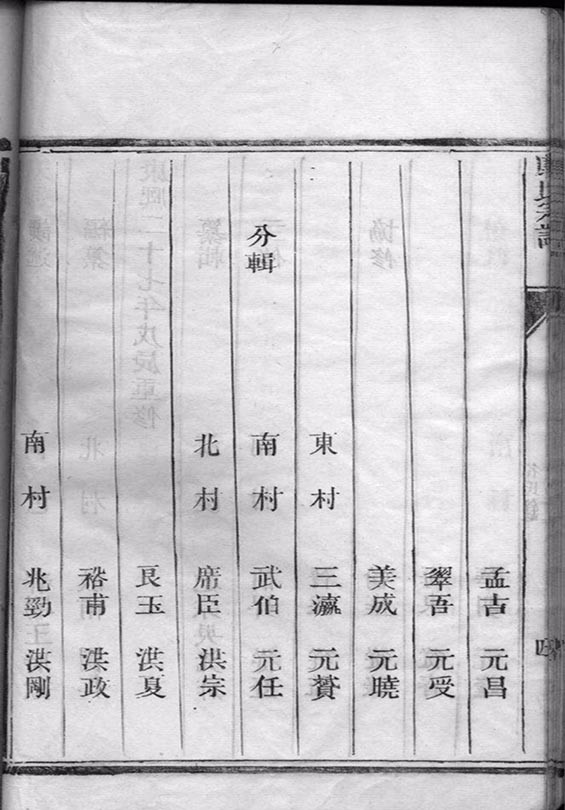 孟吉 元昌
翠吾 元受
美成 元曉
東村 三瀛 元贊
分輯 南村 武伯 元任
北村 席臣 洪宗
艮玉 洪夏
裕甫 洪政
南村 兆勁 洪剛